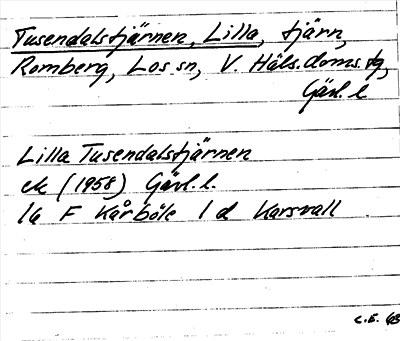 Tusendalstjärnen, Lilla, tjärn,
Romberg, Los sn, V. Häls. doms. dg,
Gävl. l
Lilla Tusendalstjärnen
ek (1958) Gävl. l.
16 F Kårböle 1 d Karsvall
C.E. 63